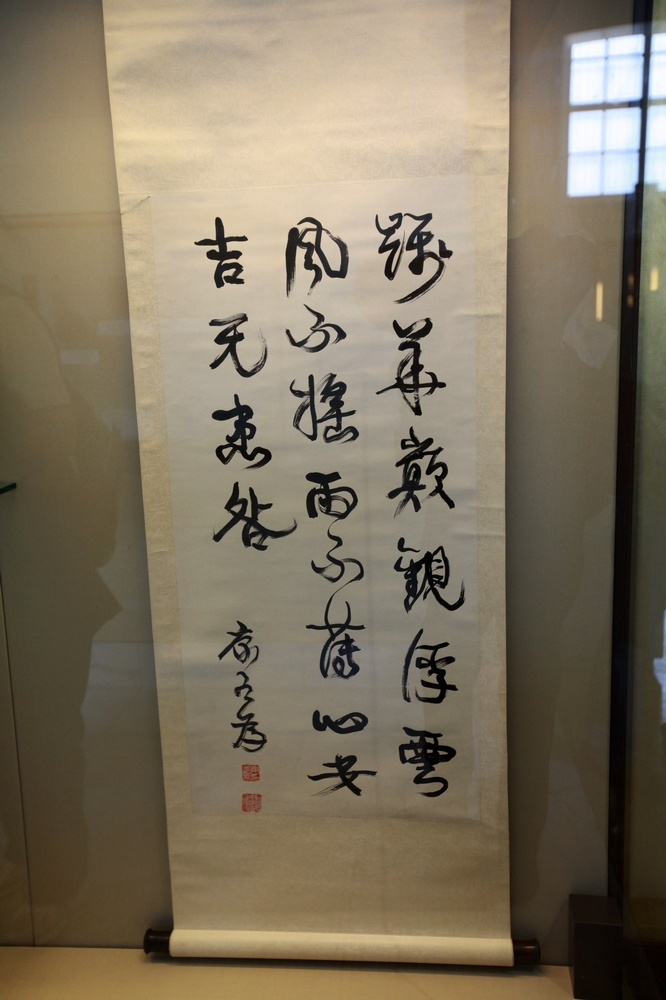 華巔觀浮雲
風不搖雨不薄心安
吉无患咎
康有為